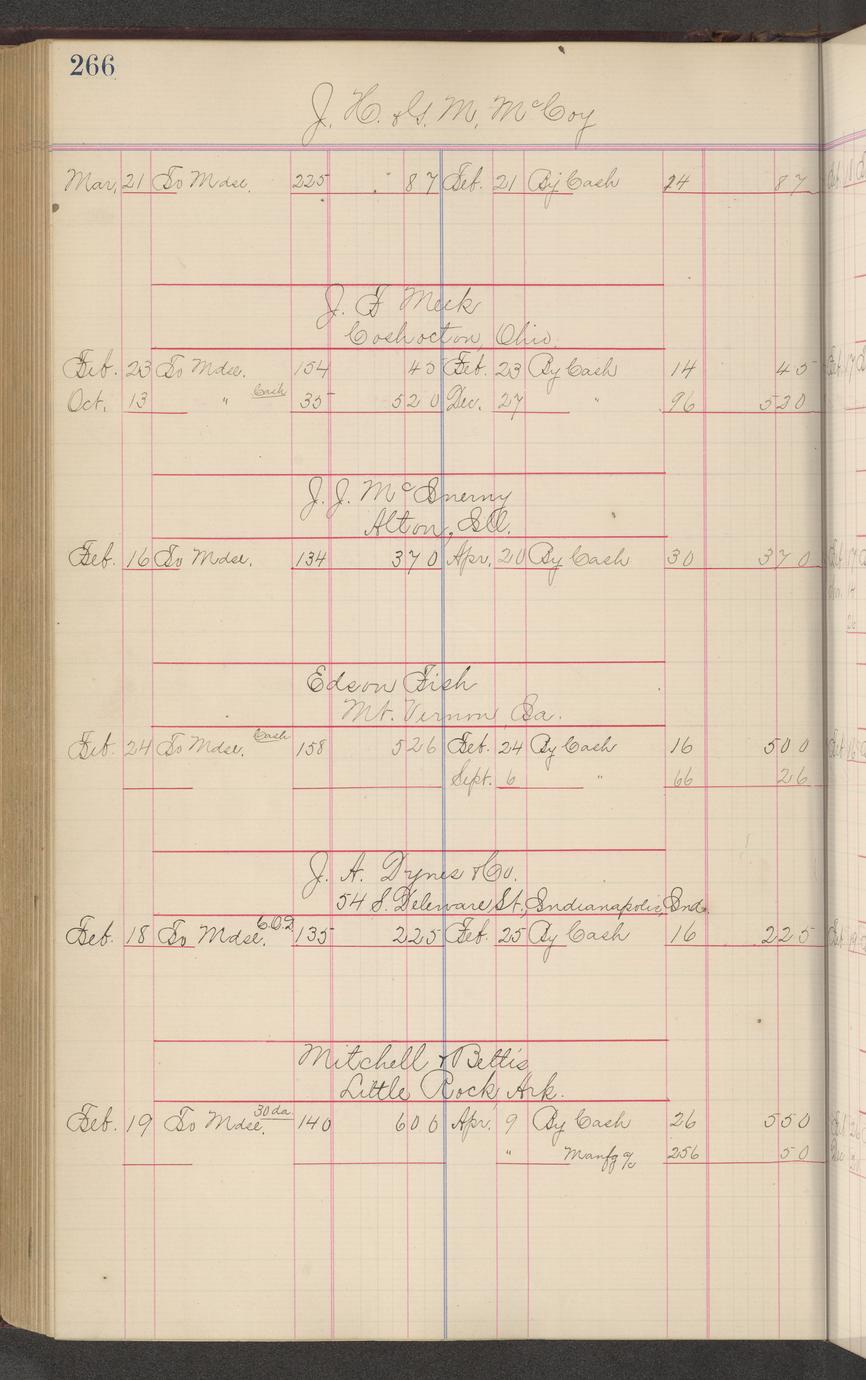 266
J. H. & G. M. McCoy
Mar. 21 To Mdse. 225 87 Feb. 21 By Cash 24 87
J. F. Meek
Coshocton, Ohio.
Feb. 23 To Mdse. 154 45 Feb. 23 By Cash 14 45
Oct. 13 " Cash 35 520 Dec. 27 " 96 520
J. J. McInerny
Alton, Ill.
Feb. 16 To Mdse. 134 370 Apr. 20 By Cash 30 370
Edson Fish
Mt. Vernon Ga.
Feb. 24 To Mdse. Cash 158 526 Feb. 24 By Cash 16 500
Sept. 6 " 66 26
J. A. Dynes & Co.
54 S. Deleware St., Indianapolis, Ind.
Feb. 18 To Mdse. C.O.D. 135 225 Feb. 25 By Cash 16 225
Mitchell & Bettis
Little Rock, Ark.
Feb. 19 To Mdse. 30 da 140 600 Apr. 9 By Cash 26 550
" Manfg a/c 256 50